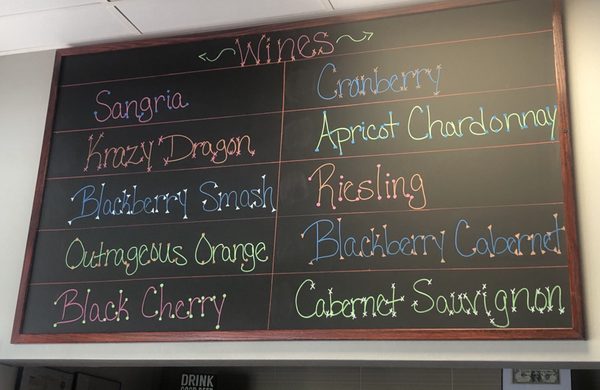 Wines
Sangria
Krazy Dragon
Blackberry Smash
Outrageous Orange
Black Cherry
Cranberry
Apricot Chardonnay
Riesling
Blackberry Cabernet
Cabernet Sauvignon
DRINK